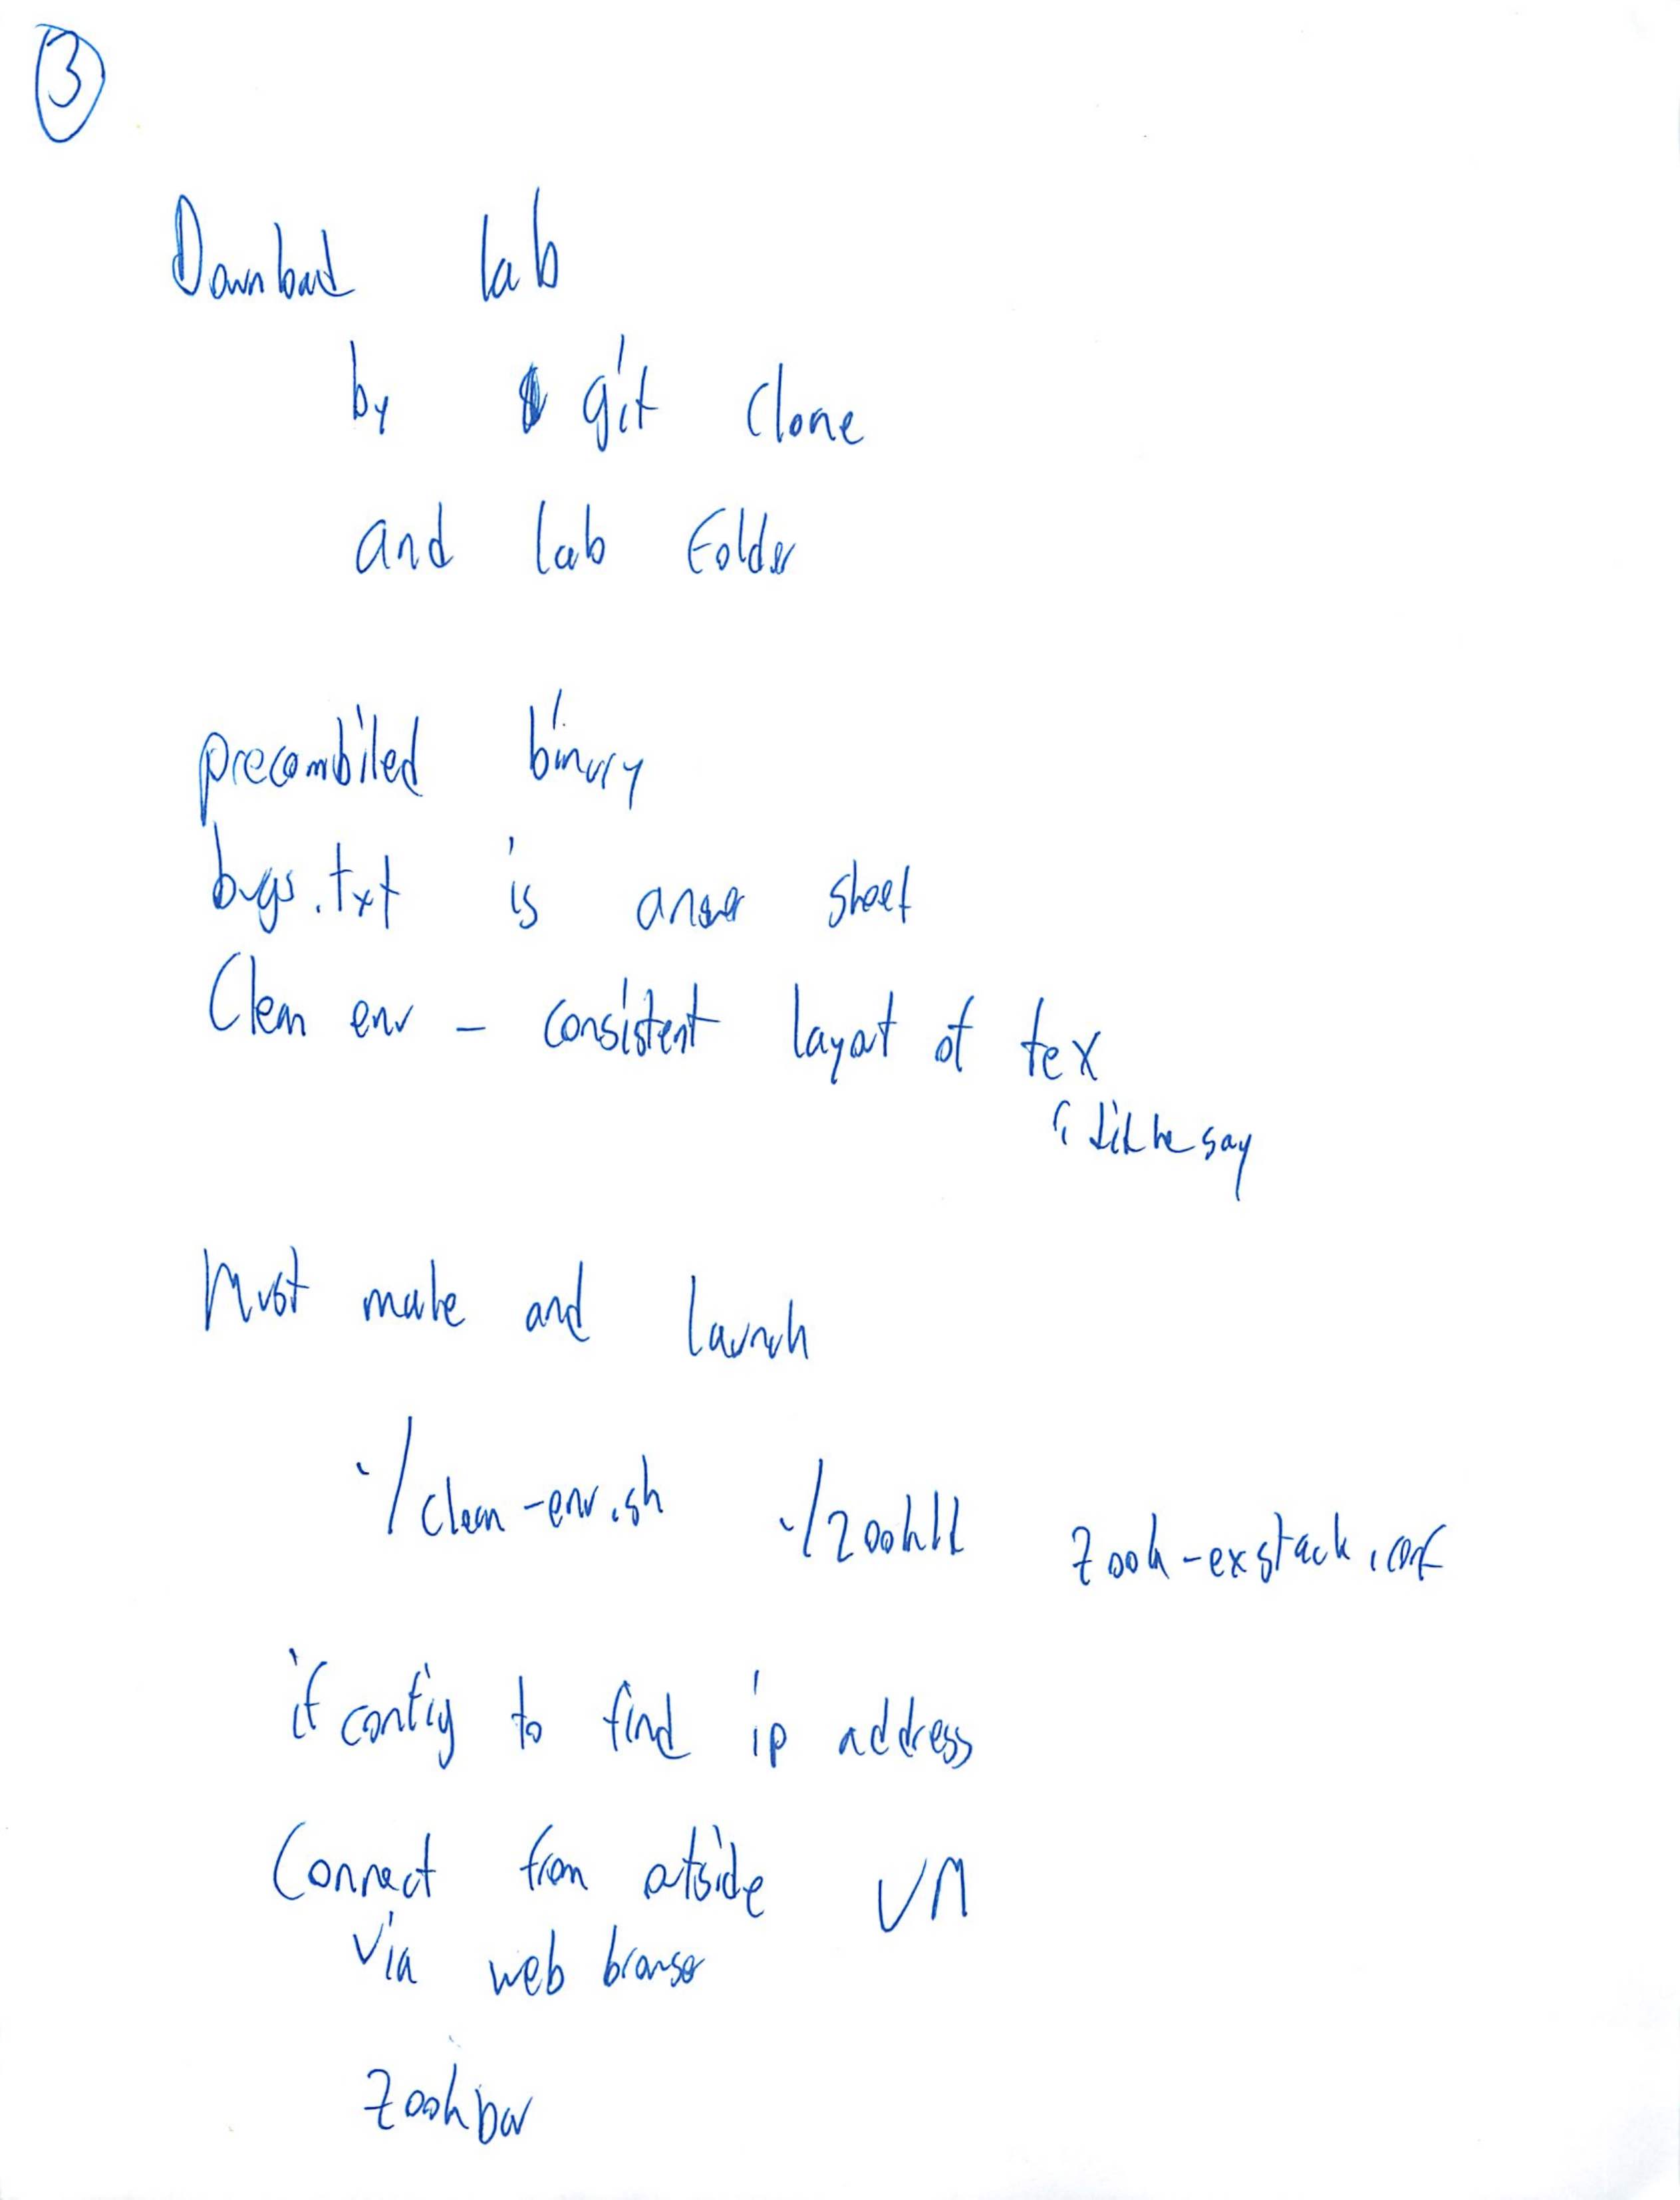 3
Download lab
by git clone
and lab folder
precombiled binary
bugs.txt is answer sheet
Clean env - consistent layout of tex
did he say
Must make and launch
./clean-env.sh ./zookld zook-exstack.conf
ifconfig to find ip address
Connect from outside VM
via web browser
zookbar